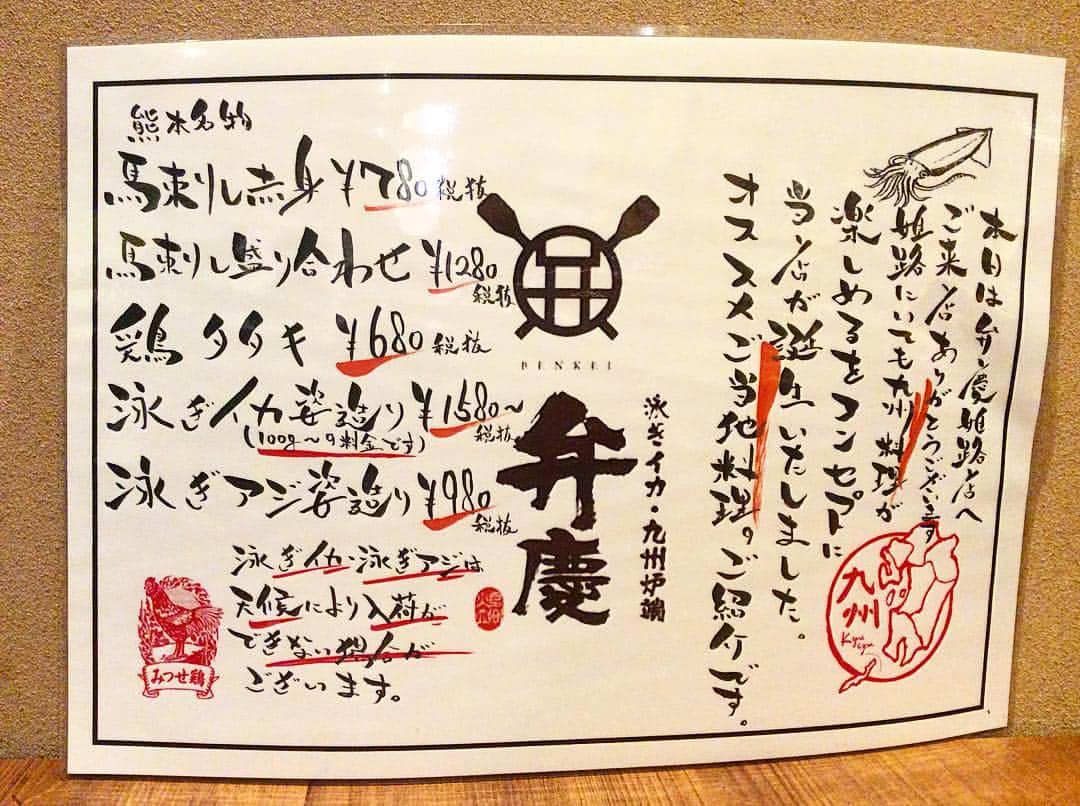 本日は弁慶姫路店へ
ご来店ありがとうございます
姫路にいても九州料理が
楽しめるをコンセプトに
当店が誕生いたしました。
オススメご当地料理のご紹介です。
九州
Kyusyu
BENKEI
泳ぎイカ・九州炉端
弁慶
熊本名物
馬刺し赤身 ¥780 税抜
馬刺し盛り合わせ ¥1280 税抜
鶏タタキ ¥680 税抜
泳ぎイカ姿造り ¥1580~ 税抜
(100g~の料金です)
泳ぎアジ姿造り ¥980 税抜
泳ぎイカ・泳ぎアジは
天候により入荷が
できない場合が
ございます。
みつせ鶏